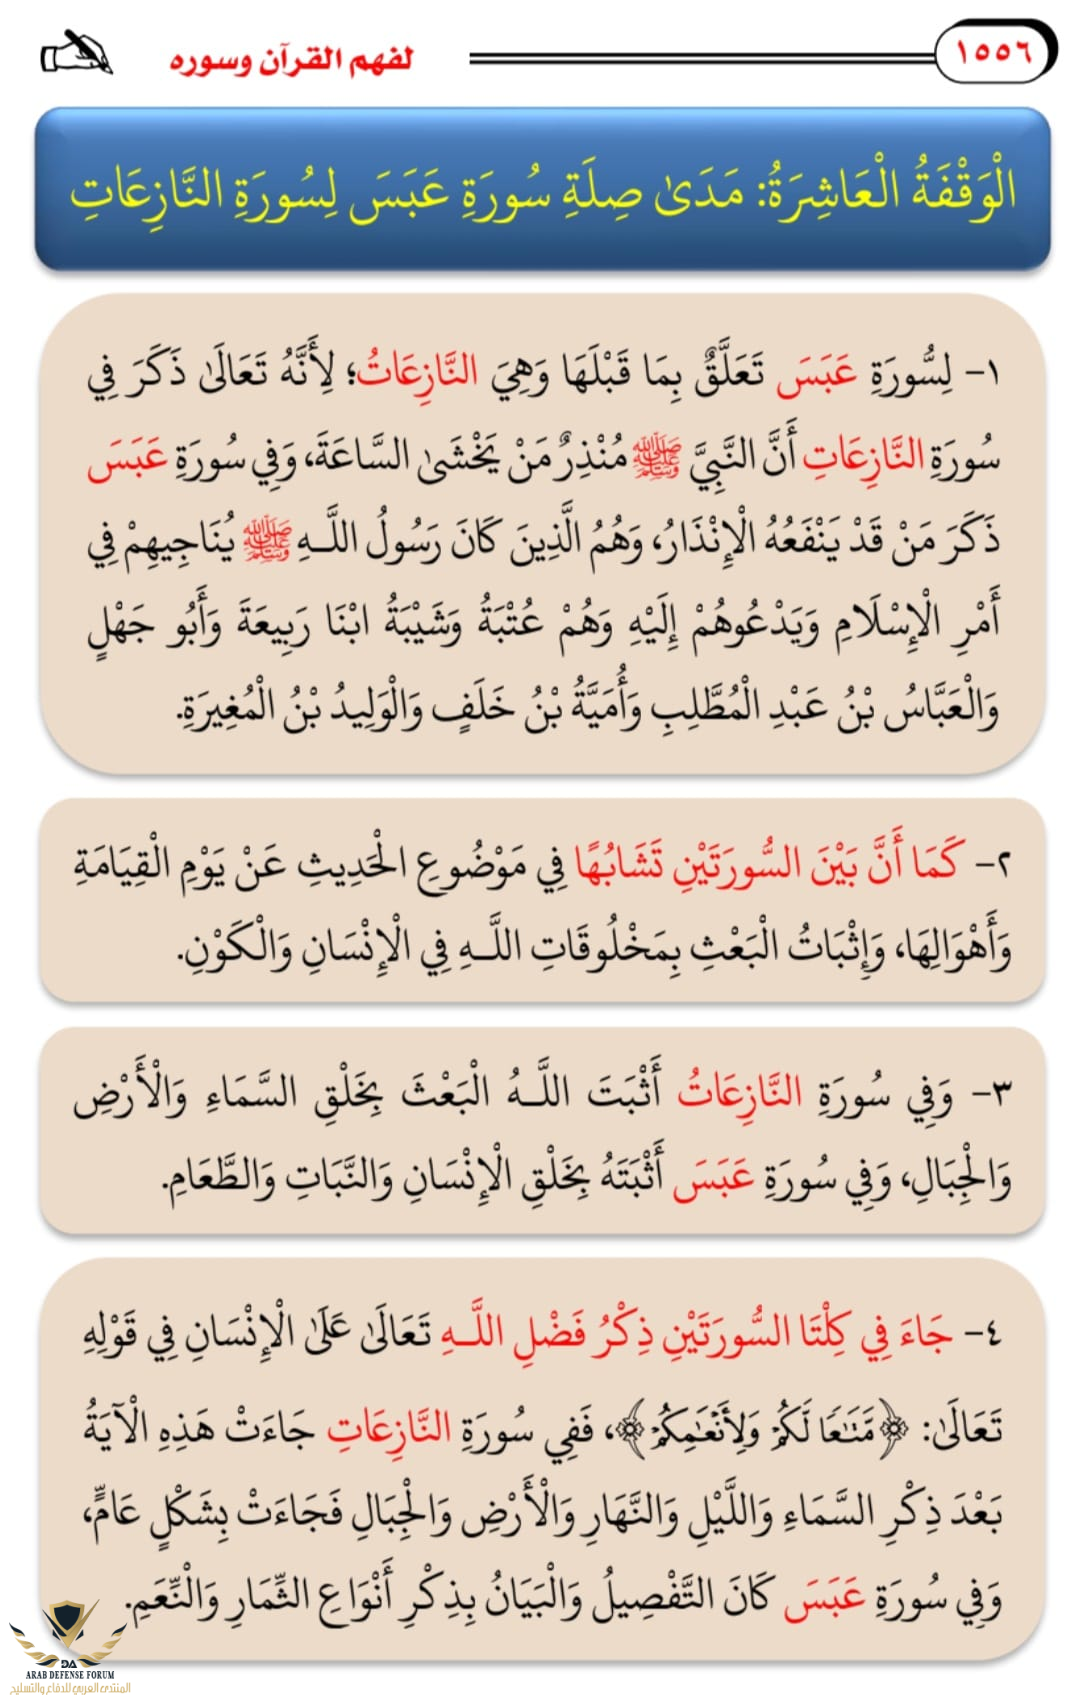 ١٥٥٦
لفهم القرآن وسوره
الْوَقْفَةُ الْعَاشِرَةُ: مَدَىٰ صِلَةِ سُورَةِ عَبَسَ لِسُورَةِ النَّازِعَاتِ
١- لِسُّورَةِ عَبَسَ تَعَلَّقٌ بِمَا قَبْلَهَا وَهِيَ النَّازِعَاتُ؛ لِأَنَّهُ تَعَالَىٰ ذَكَرَ فِي
سُورَةِ النَّازِعَاتِ أَنَّ النَّبِيَّ ﷺ مُنْذِرٌ مَنْ يَخْشَىٰ السَّاعَةَ، وَفِي سُورَةِ عَبَسَ
ذَكَرَ مَنْ قَدْ يَنْفَعُهُ الْإِنْذَارُ، وَهُمُ الَّذِينَ كَانَ رَسُولُ اللَّـهِ ﷺ يُنَاجِيهِمْ فِي
أَمْرِ الْإِسْلَامِ وَيَدْعُوهُمْ إِلَيْهِ وَهُمْ عُتْبَةُ وَشَيْبَةُ ابْنَا رَبِيعَةَ وَأَبُو جَهْلٍ
وَالْعَبَّاسُ بْنُ عَبْدِ الْمُطَّلِبِ وَأُمَيَّةُ بْنُ خَلَفٍ وَالْوَلِيدُ بْنُ الْمُغِيرَةِ.
٢- كَمَا أَنَّ بَيْنَ السُّورَتَيْنِ تَشَابُهًا فِي مَوْضُوعِ الْحَدِيثِ عَنْ يَوْمِ الْقِيَامَةِ
وَأَهْوَالِهَا، وَإِثْبَاتُ الْبَعْثِ بِمَخْلُوقَاتِ اللَّـهِ فِي الْإِنْسَانِ وَالْكَوْنِ.
٣- وَفِي سُورَةِ النَّازِعَاتُ أَثْبَتَ اللَّـهُ الْبَعْثَ بِخَلْقِ السَّمَاءِ وَالْأَرْضِ
وَالْجِبَالِ، وَفِي سُورَةِ عَبَسَ أَثْبَتَهُ بِخَلْقِ الْإِنْسَانِ وَالنَّبَاتِ وَالطَّعَامِ.
٤- جَاءَ فِي كِلْتَا السُّورَتَيْنِ ذِكْرُ فَضْلِ اللَّـهِ تَعَالَىٰ عَلَىٰ الْإِنْسَانِ فِي قَوْلِهِ
تَعَالَىٰ: ﴿مَّتَـٰعًا لَّكُمْ وَلِأَنْعَـٰمِكُمْ﴾، فَفِي سُورَةِ النَّازِعَاتِ جَاءَتْ هَذِهِ الْآيَةُ
بَعْدَ ذِكْرِ السَّمَاءِ وَاللَّيْلِ وَالنَّهَارِ وَالْأَرْضِ وَالْجِبَالِ فَجَاءَتْ بِشَكْلٍ عَامٍّ،
وَفِي سُورَةِ عَبَسَ كَانَ التَّفْصِيلُ وَالْبَيَانُ بِذِكْرِ أَنْوَاعِ الثِّمَارِ وَالنِّعَمِ.
DA
ARAB DEFENSE FORUM
المنتدى العربي للدفاع والتسليح